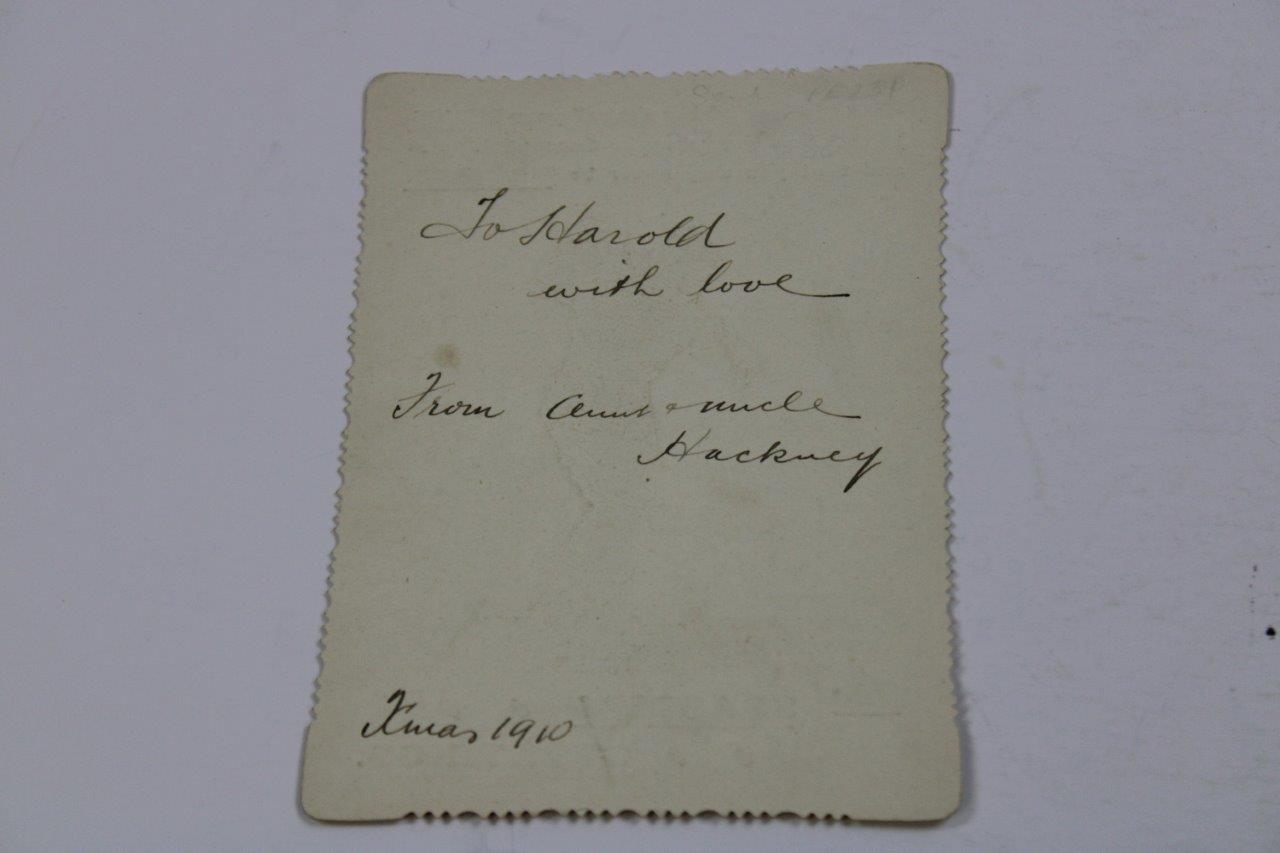 To Harold
with love
From Aunt & uncle
Hackney
Xmas 1910